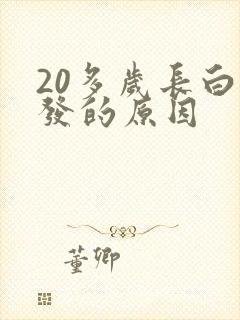 20多歲長白
發的原因
董卿